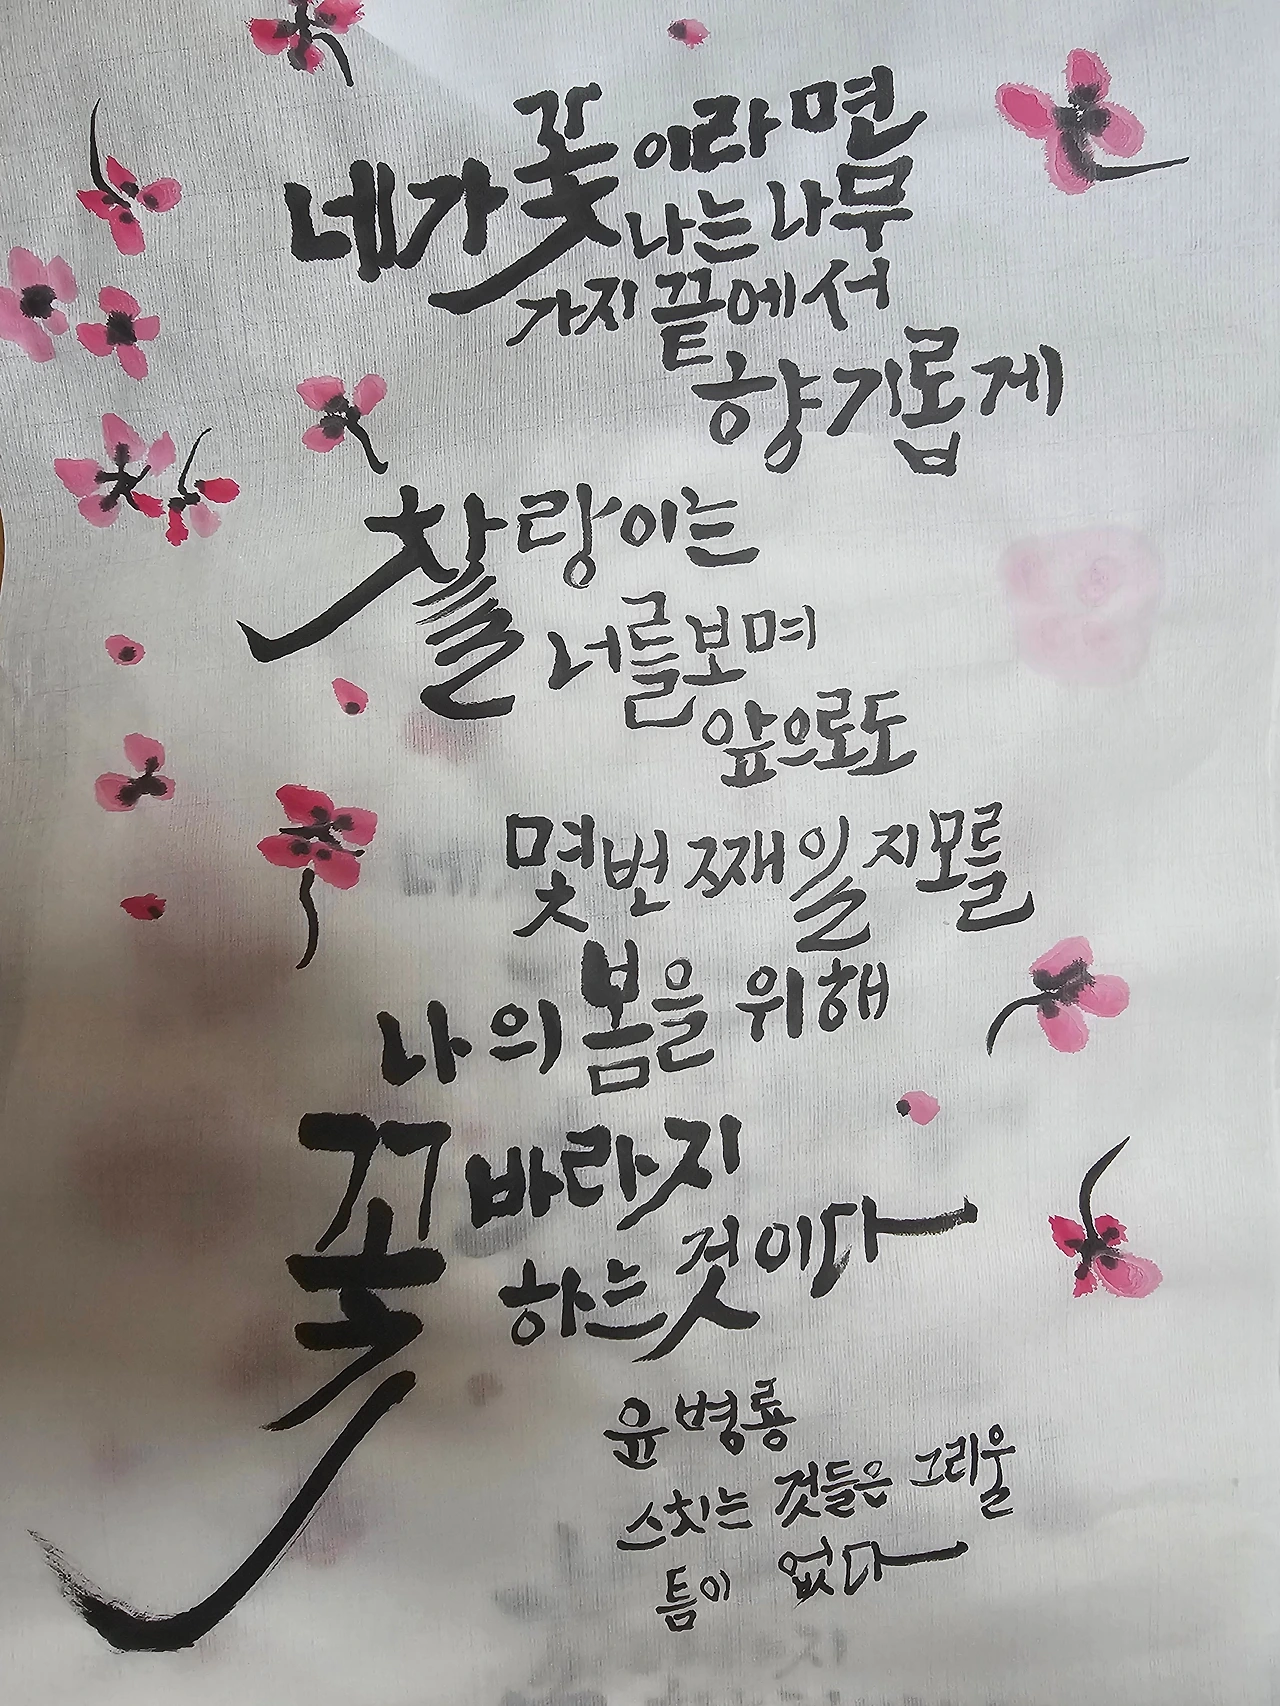 네가 꽃이라면
나는 나무
가지 끝에서
향기롭게
찰랑이는
너를 보며
앞으로도
몇 번째일지 모를
나의 봄을 위해
꽃바라지
하는 것이다
윤병룡
스치는 것들은 그리울
틈이 없다